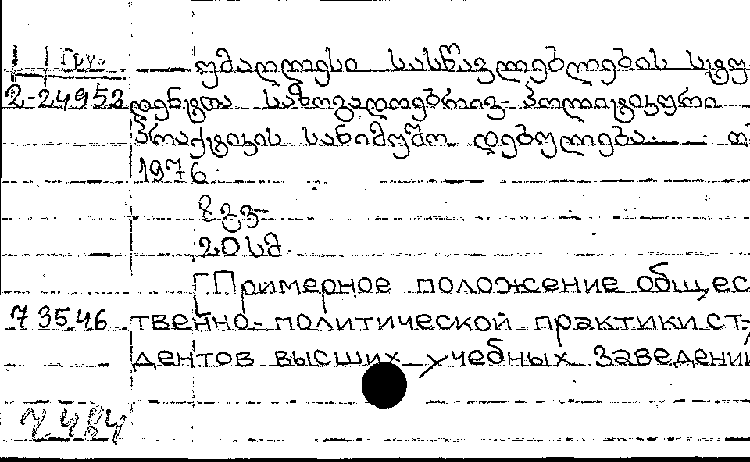 Гру.
უმაღლესი სასწავლებლების სტუ
2-24952 დენტთა საზოგადოებრივ-პოლიტიკური
პრაქტიკის სანიმუშო დებულება. თ
1976.
20 სმ.
[Примерное положение общес
73546 твенно-политической практики ст
дентов высших учебных заведени